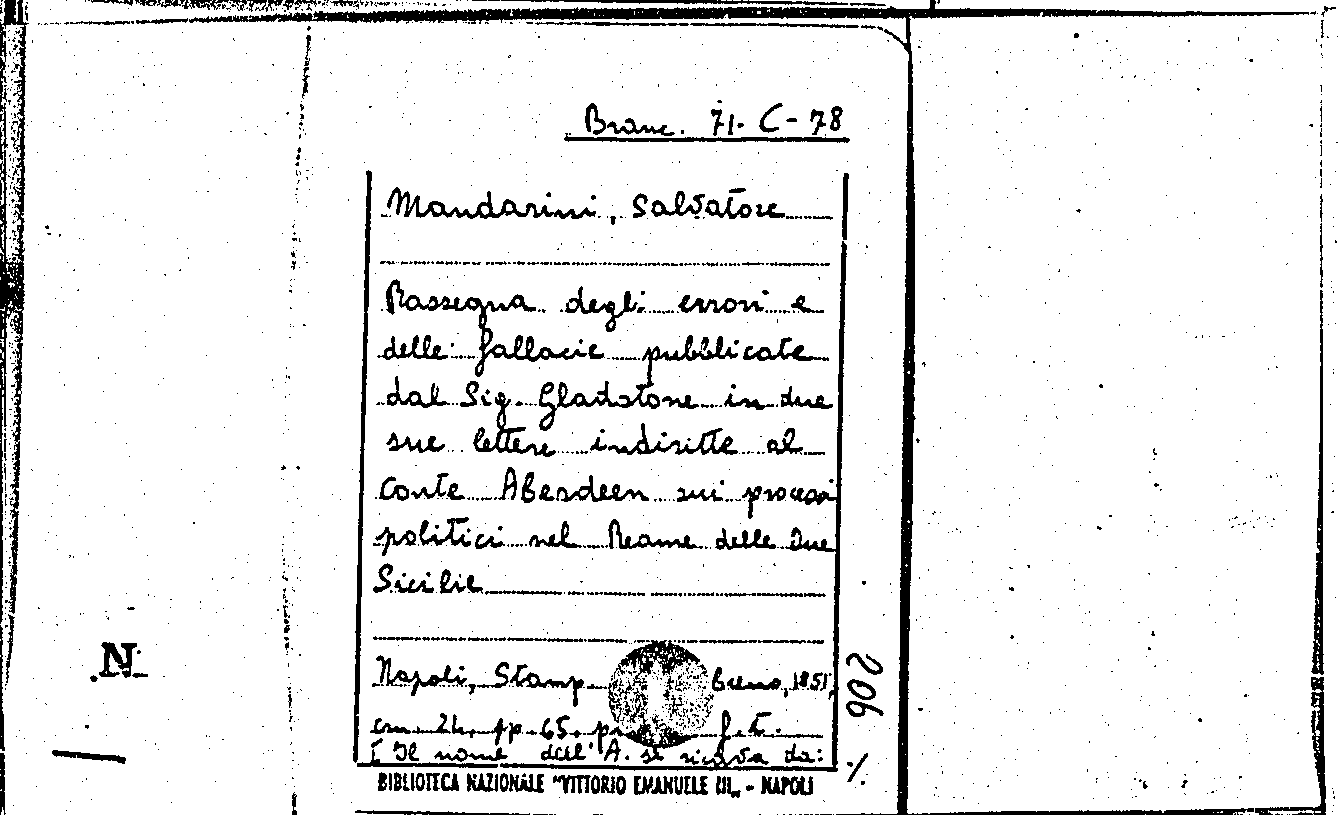 Branc. 71- C - 78
Mandarini, Salvatore
Rassegna degli errori e
delle fallacie pubblicate
dal Sig. Gladstone in due
sue lettere indiritte al
Conte Aberdeen sui processi
politici nel Reame delle Due
Sicilie
Napoli, Stamp. 1851,
cm. 24, pp. 65. f.t.
[Il nome dell'A. si ricava da:
./.
206
N
BIBLIOTECA NAZIONALE "VITTORIO EMANUELE III„ - NAPOLI